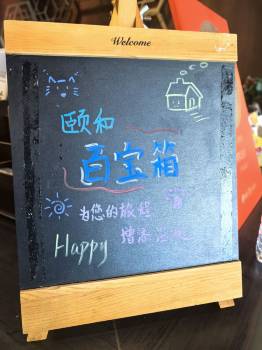 Welcome
颐和
百宝箱
为您的旅程
Happy 增添